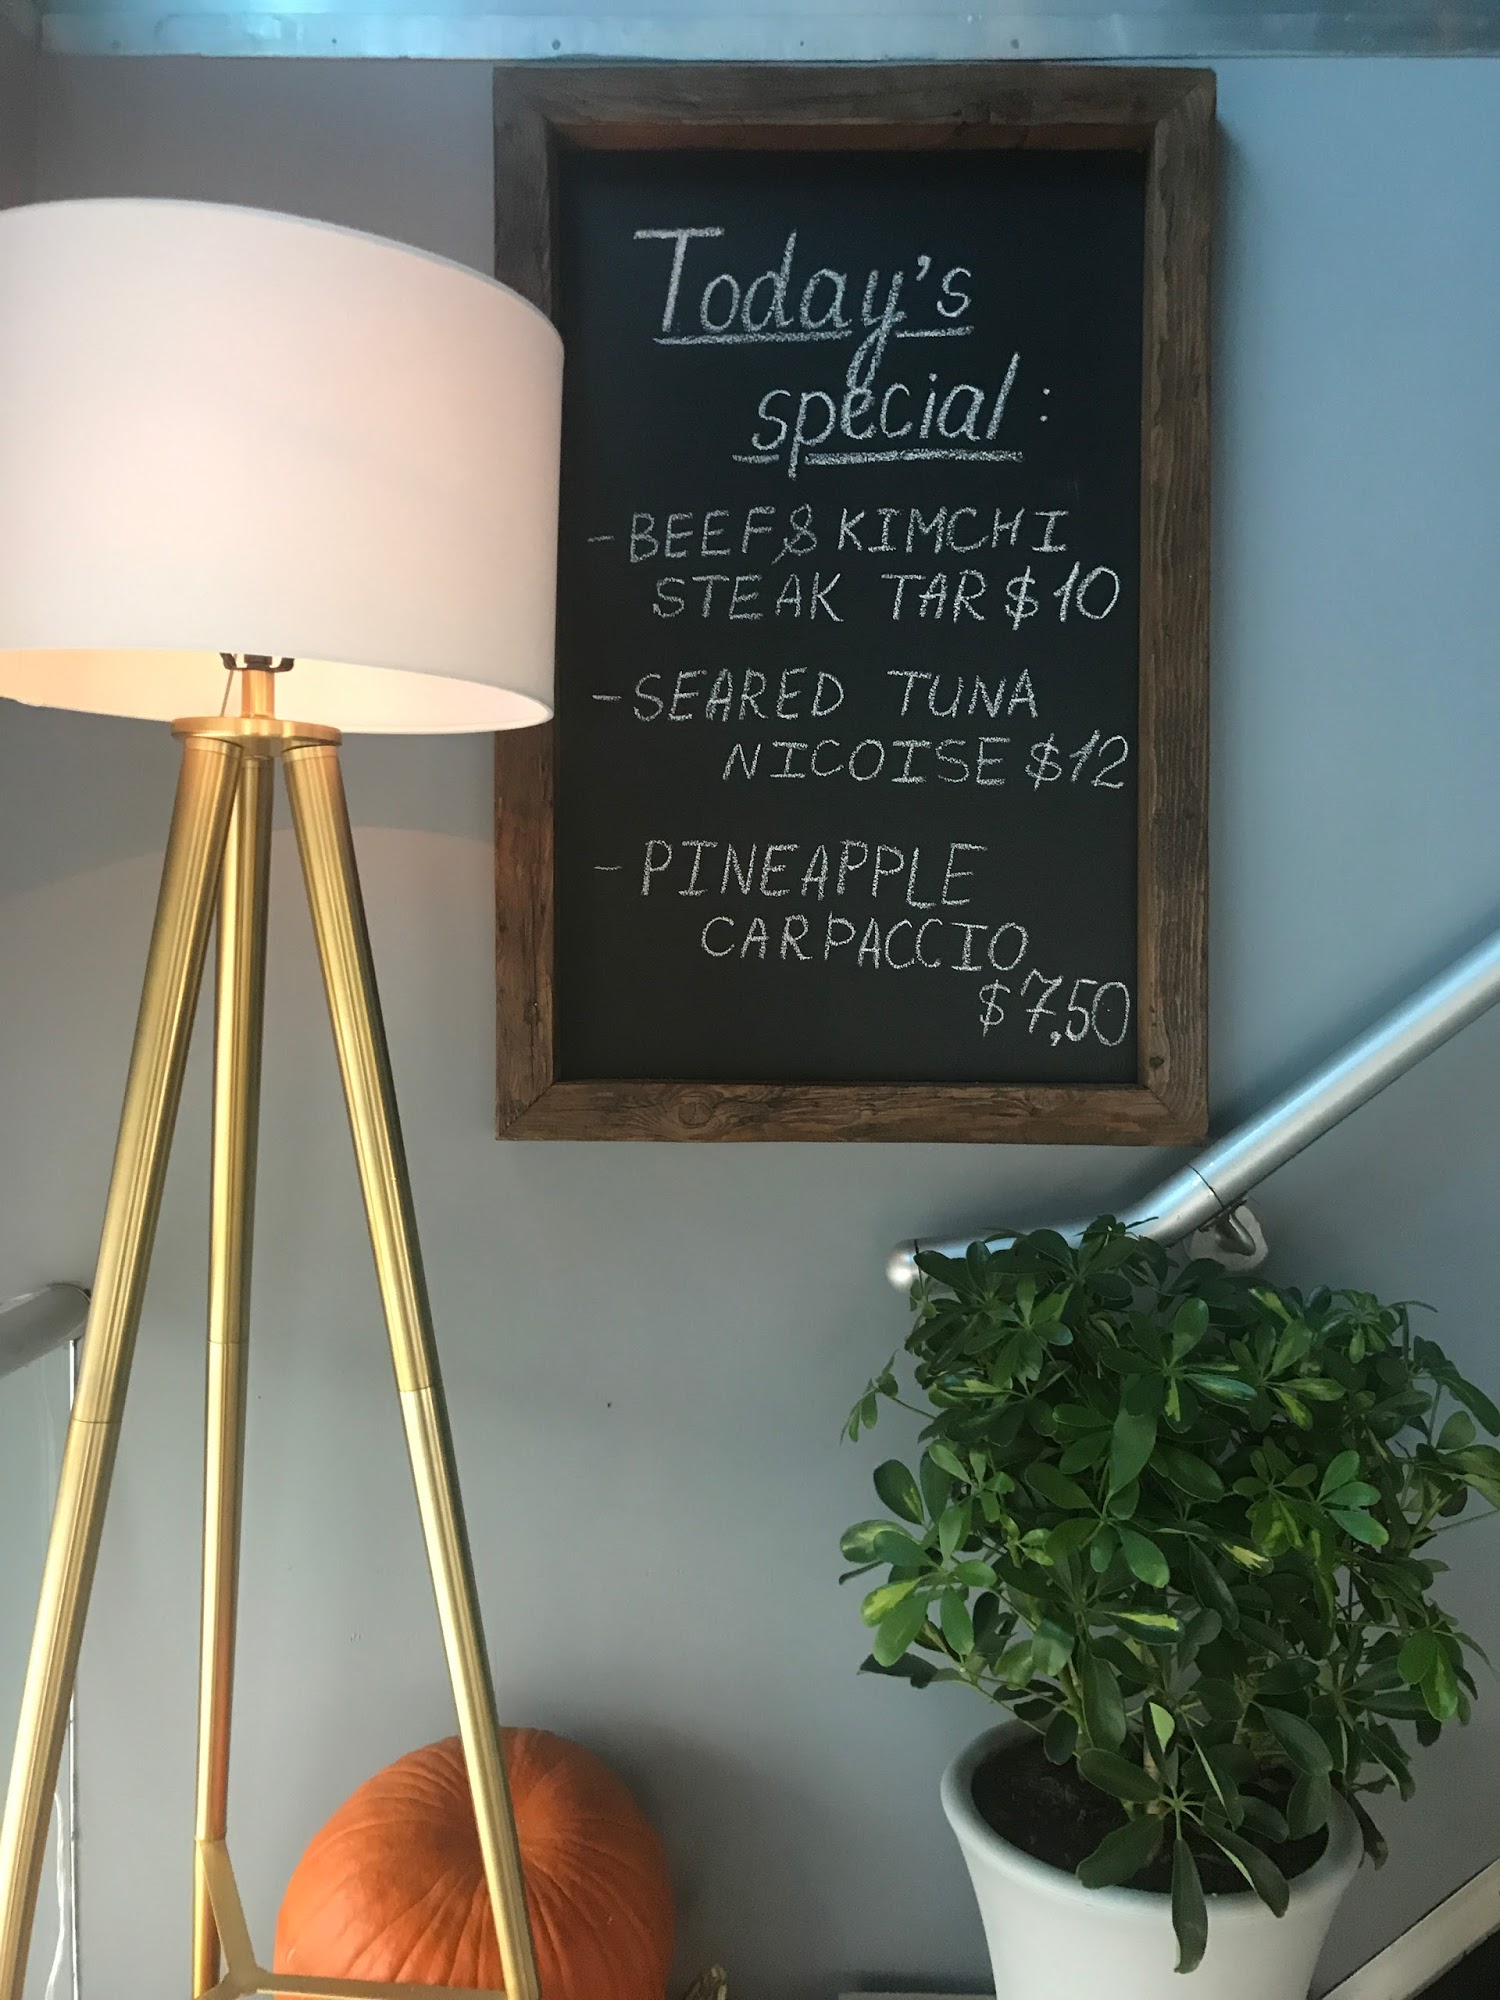 Today's
special:
- BEEF & KIMCHI
STEAK TAR $10
- SEARED TUNA
NICOISE $12
- PINEAPPLE
CARPACCIO
$7,50